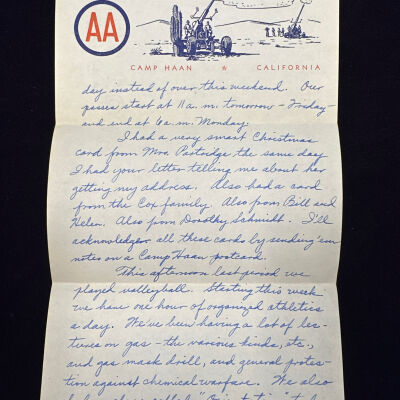 AA
CAMP HAAN ★ CALIFORNIA
day instead of over this weekend. Our
passes start at 11 a.m. tomorrow - Friday -
and end at 6 a.m. Monday.
I had a very smart Christmas
card from Mrs. Partridge the same day
I had your letter telling me about her
getting my address. Also had a card
from the Cox family. Also from Bill and
Helen. Also from Dorothy Schmidt. I'll
acknowledge all these cards by sending 'em
notes on a Camp Haan postcard.
This afternoon last period we
played volleyball. Starting this week
we have one hour of organized athletics
a day. We've been having a lot of lec-
tures on gas - the various kinds, etc.,
and gas mask drill, and general protec-
tion against chemical warfare. We also